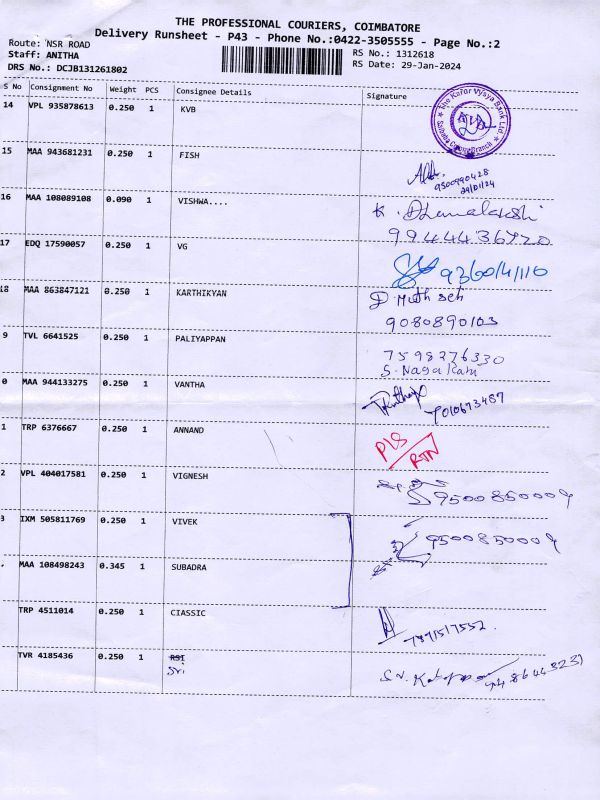 THE PROFESSIONAL COURIERS, COIMBATORE
Delivery Runsheet - P43 - Phone No.:0422-3505555 - Page No.:2
Route: NSR ROAD
Staff: ANITHA
DRS No.: DCJB131261802
RS No.: 1312618
RS Date: 29-Jan-2024
S No Consignment No Weight PCS Consignee Details Signature
14 VPL 935878613 0.250 1 KVB
The Karur Vysya Bank Ltd.
15 MAA 943681231 0.250 1 FISH
9500990428
29/01/24
16 MAA 108089108 0.090 1 VISHWA....
K. Dhanalakshi
9944436720
17 EDQ 17590057 0.250 1 VG
18 MAA 863847121 0.250 1 KARTHIKYAN
9080890103
9 TVL 6641525 0.250 1 PALIYAPPAN
7598276330
S. Naga Rani
0 MAA 944133275 0.250 1 VANTHA
7010673487
1 TRP 6376667 0.250 1 ANNAND
PLS
RTN
2 VPL 404017581 0.250 1 VIGNESH
9500850009
3 IXM 505811769 0.250 1 VIVEK
9500850009
MAA 108498243 0.345 1 SUBADRA
TRP 4511014 0.250 1 CIASSIC
TVR 4185436 0.250 1 RSI
Sri